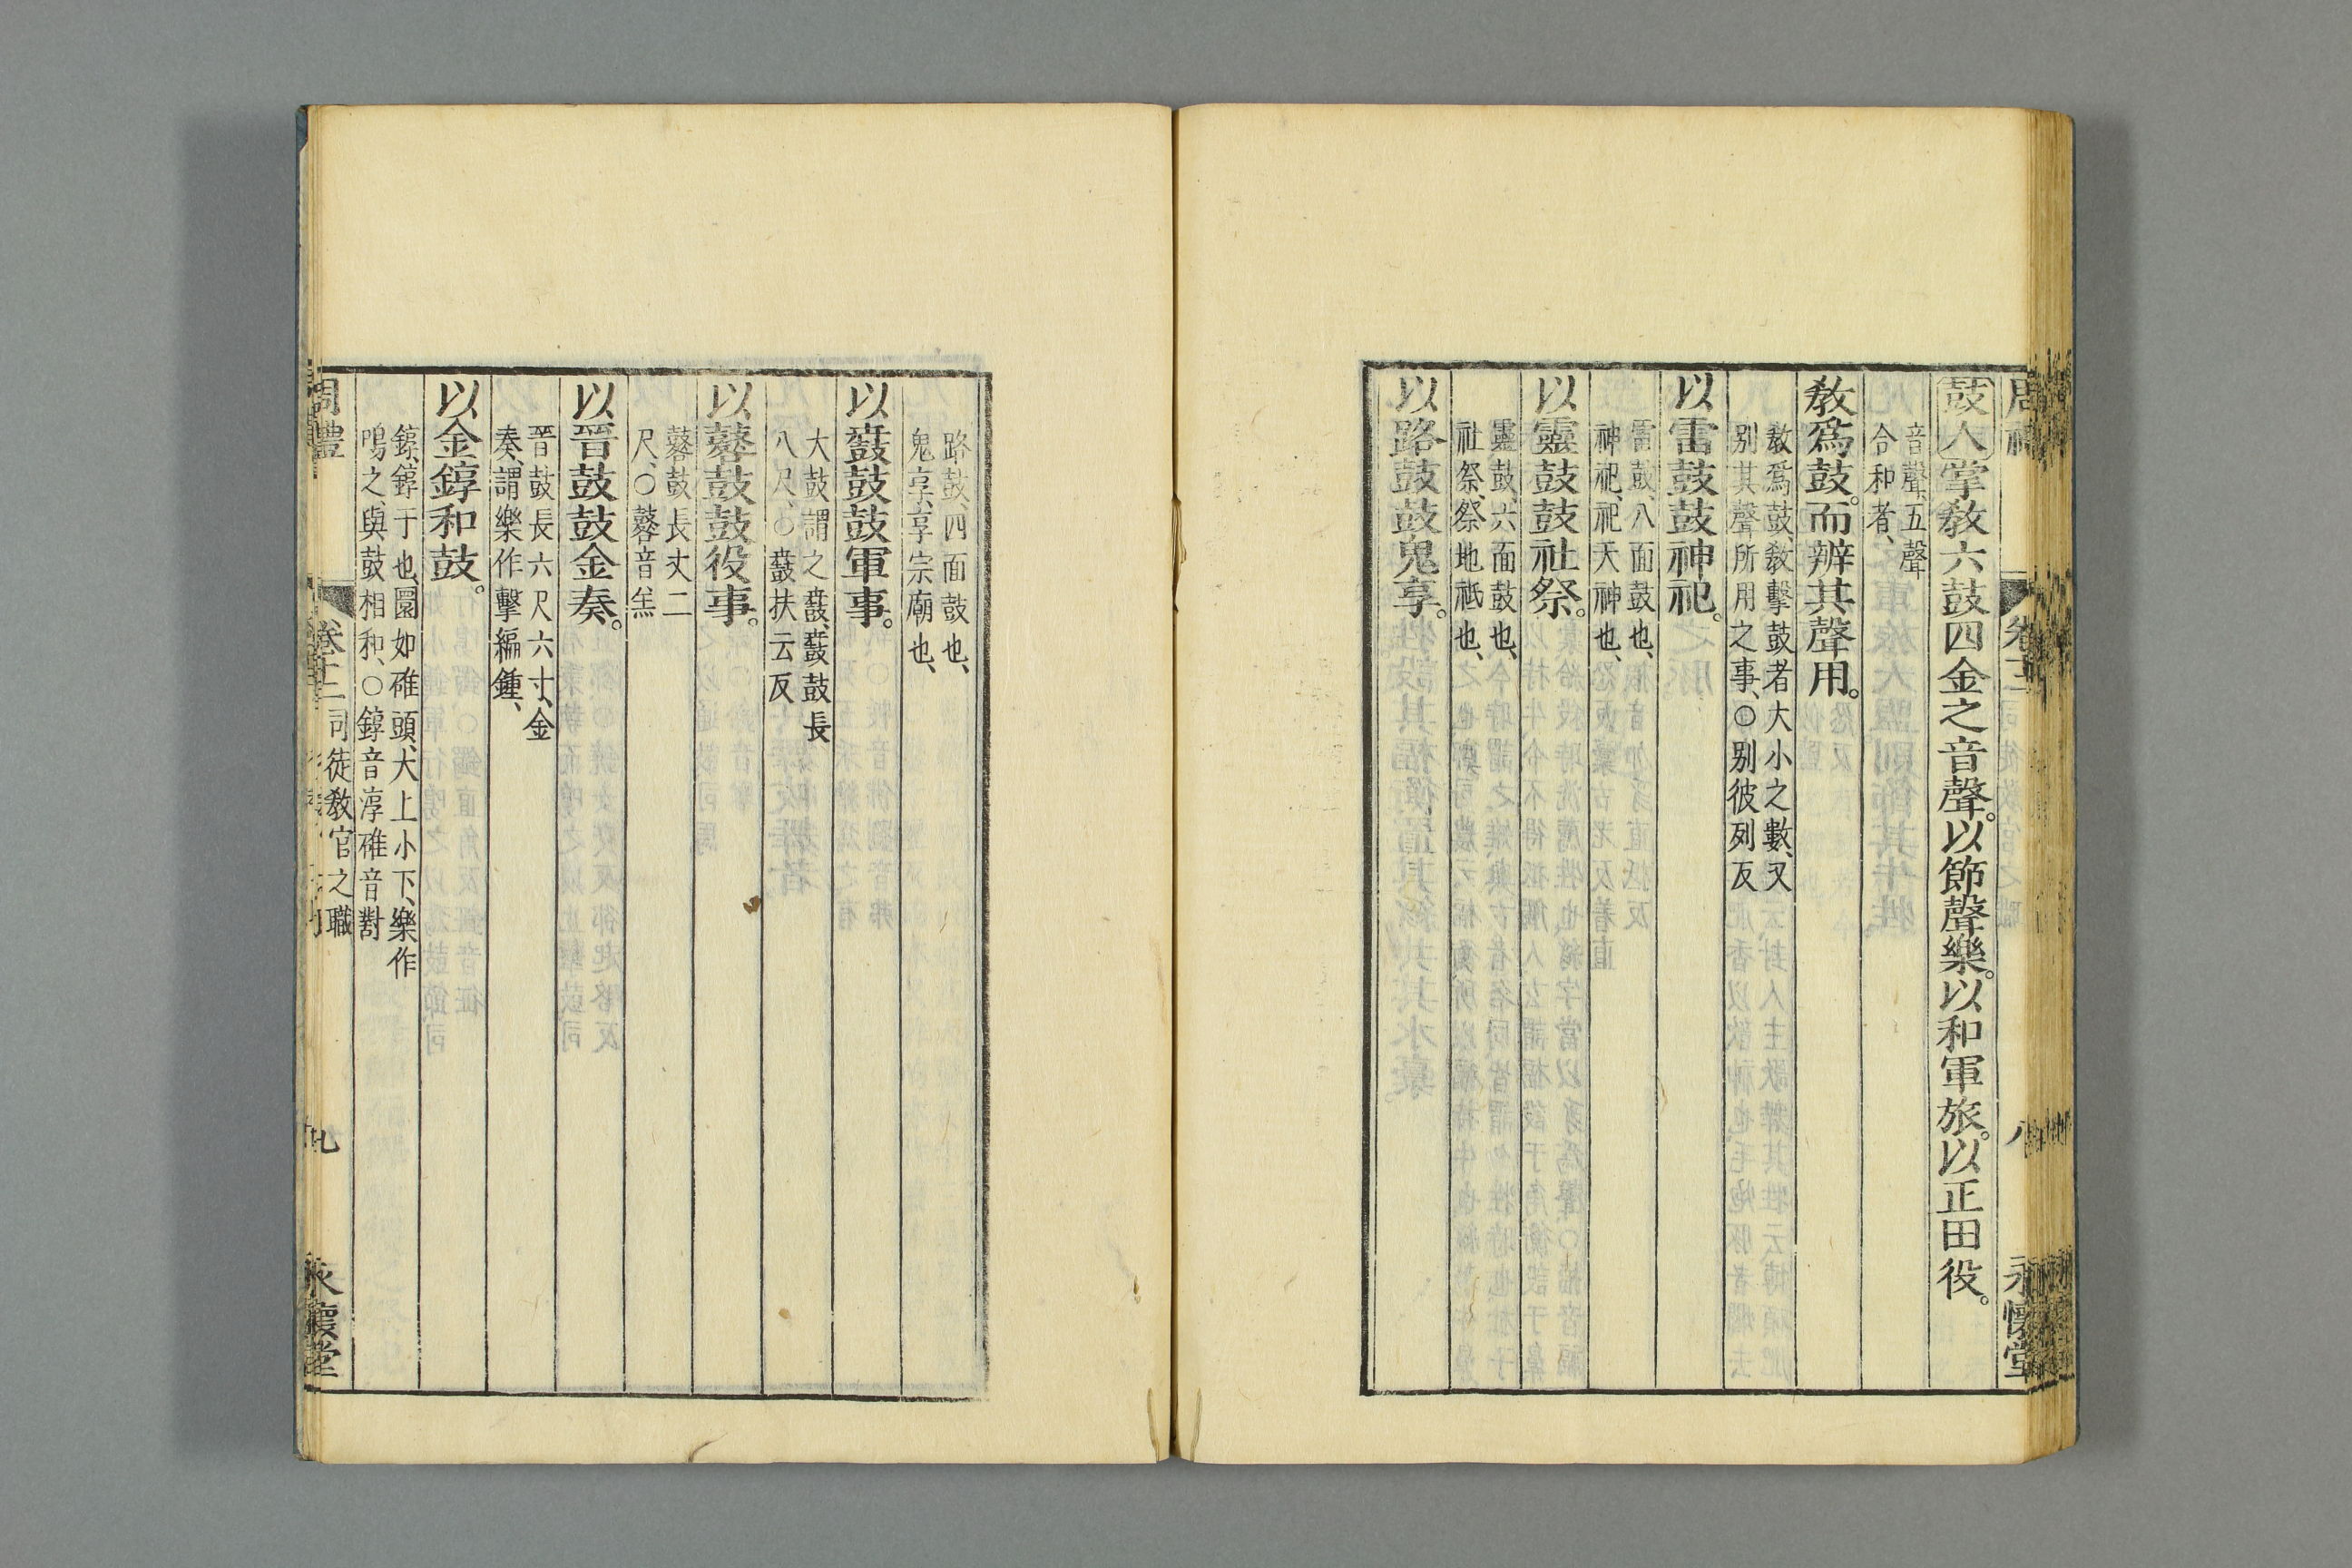 鼓人掌敎六鼓四金之音聲。以節聲樂。以和軍旅。以正田役。
音聲、五聲
合和者、
敎爲鼓。而辨其聲用。
敎爲鼓、敎擊鼓者大小之數、又
别其聲所用之事、○别彼列反
以雷鼓鼓神祀。
雷鼓、八面鼓也、
神祀、祀天神也、
以靈鼓鼓社祭。
靈鼓、六面鼓也、
社祭、祭地祗也、
以路鼓鼓鬼享。
路鼓、四面鼓也、
鬼享、享宗廟也、
以鼖鼓鼓軍事。
大鼓謂之鼖、鼖鼓長
八尺、○鼖扶云反
以鼛鼓鼓役事。
鼛鼓長丈二
尺、○鼛音羔
以晉鼓鼓金奏。
晉鼓長六尺六寸、金
奏、謂樂作擊編鍾、
以金錞和鼓。
錞、錞于也、圜如碓頭、大上小下、樂作
鳴之、與鼓相和、○錞音淳碓音對
周禮 卷十二 司徒敎官之職 九 永懷堂